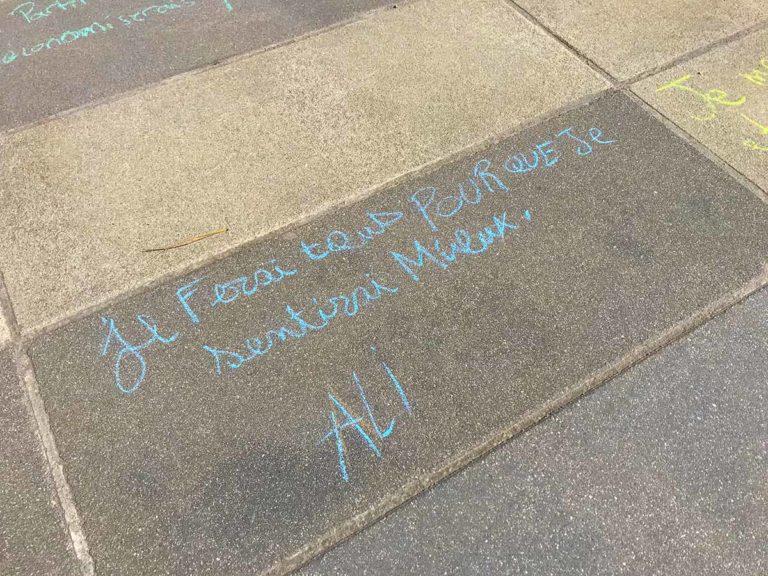 economiserais
Je
Je Ferai tous POUR QUE Je
sentirai Mieux.
ALi